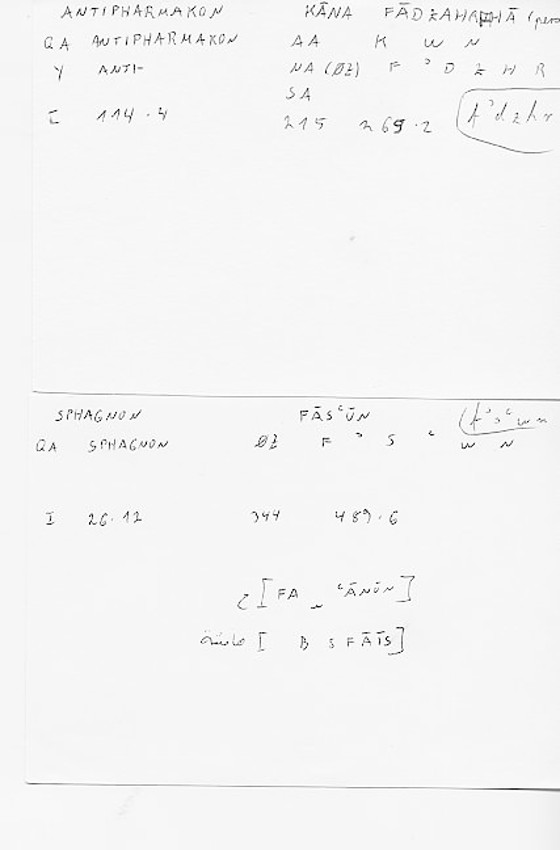 ANTIPHARMAKON KĀNA FĀDZAHRHĀ (pers
QA ANTIPHARMAKON AA K W N
Y ANTI- NA (ØZ) F ʾ D Z H R
SA
I 114.4 215 269.2 (fʾdzhr
SPHAGNON FĀSʿŪN (fʾsʿwn
QA SPHAGNON ØZ F ʾ S ʿ W N
I 26.12 344 489.6
[FA ʿĀNŪN]
[B S FĀĪS]